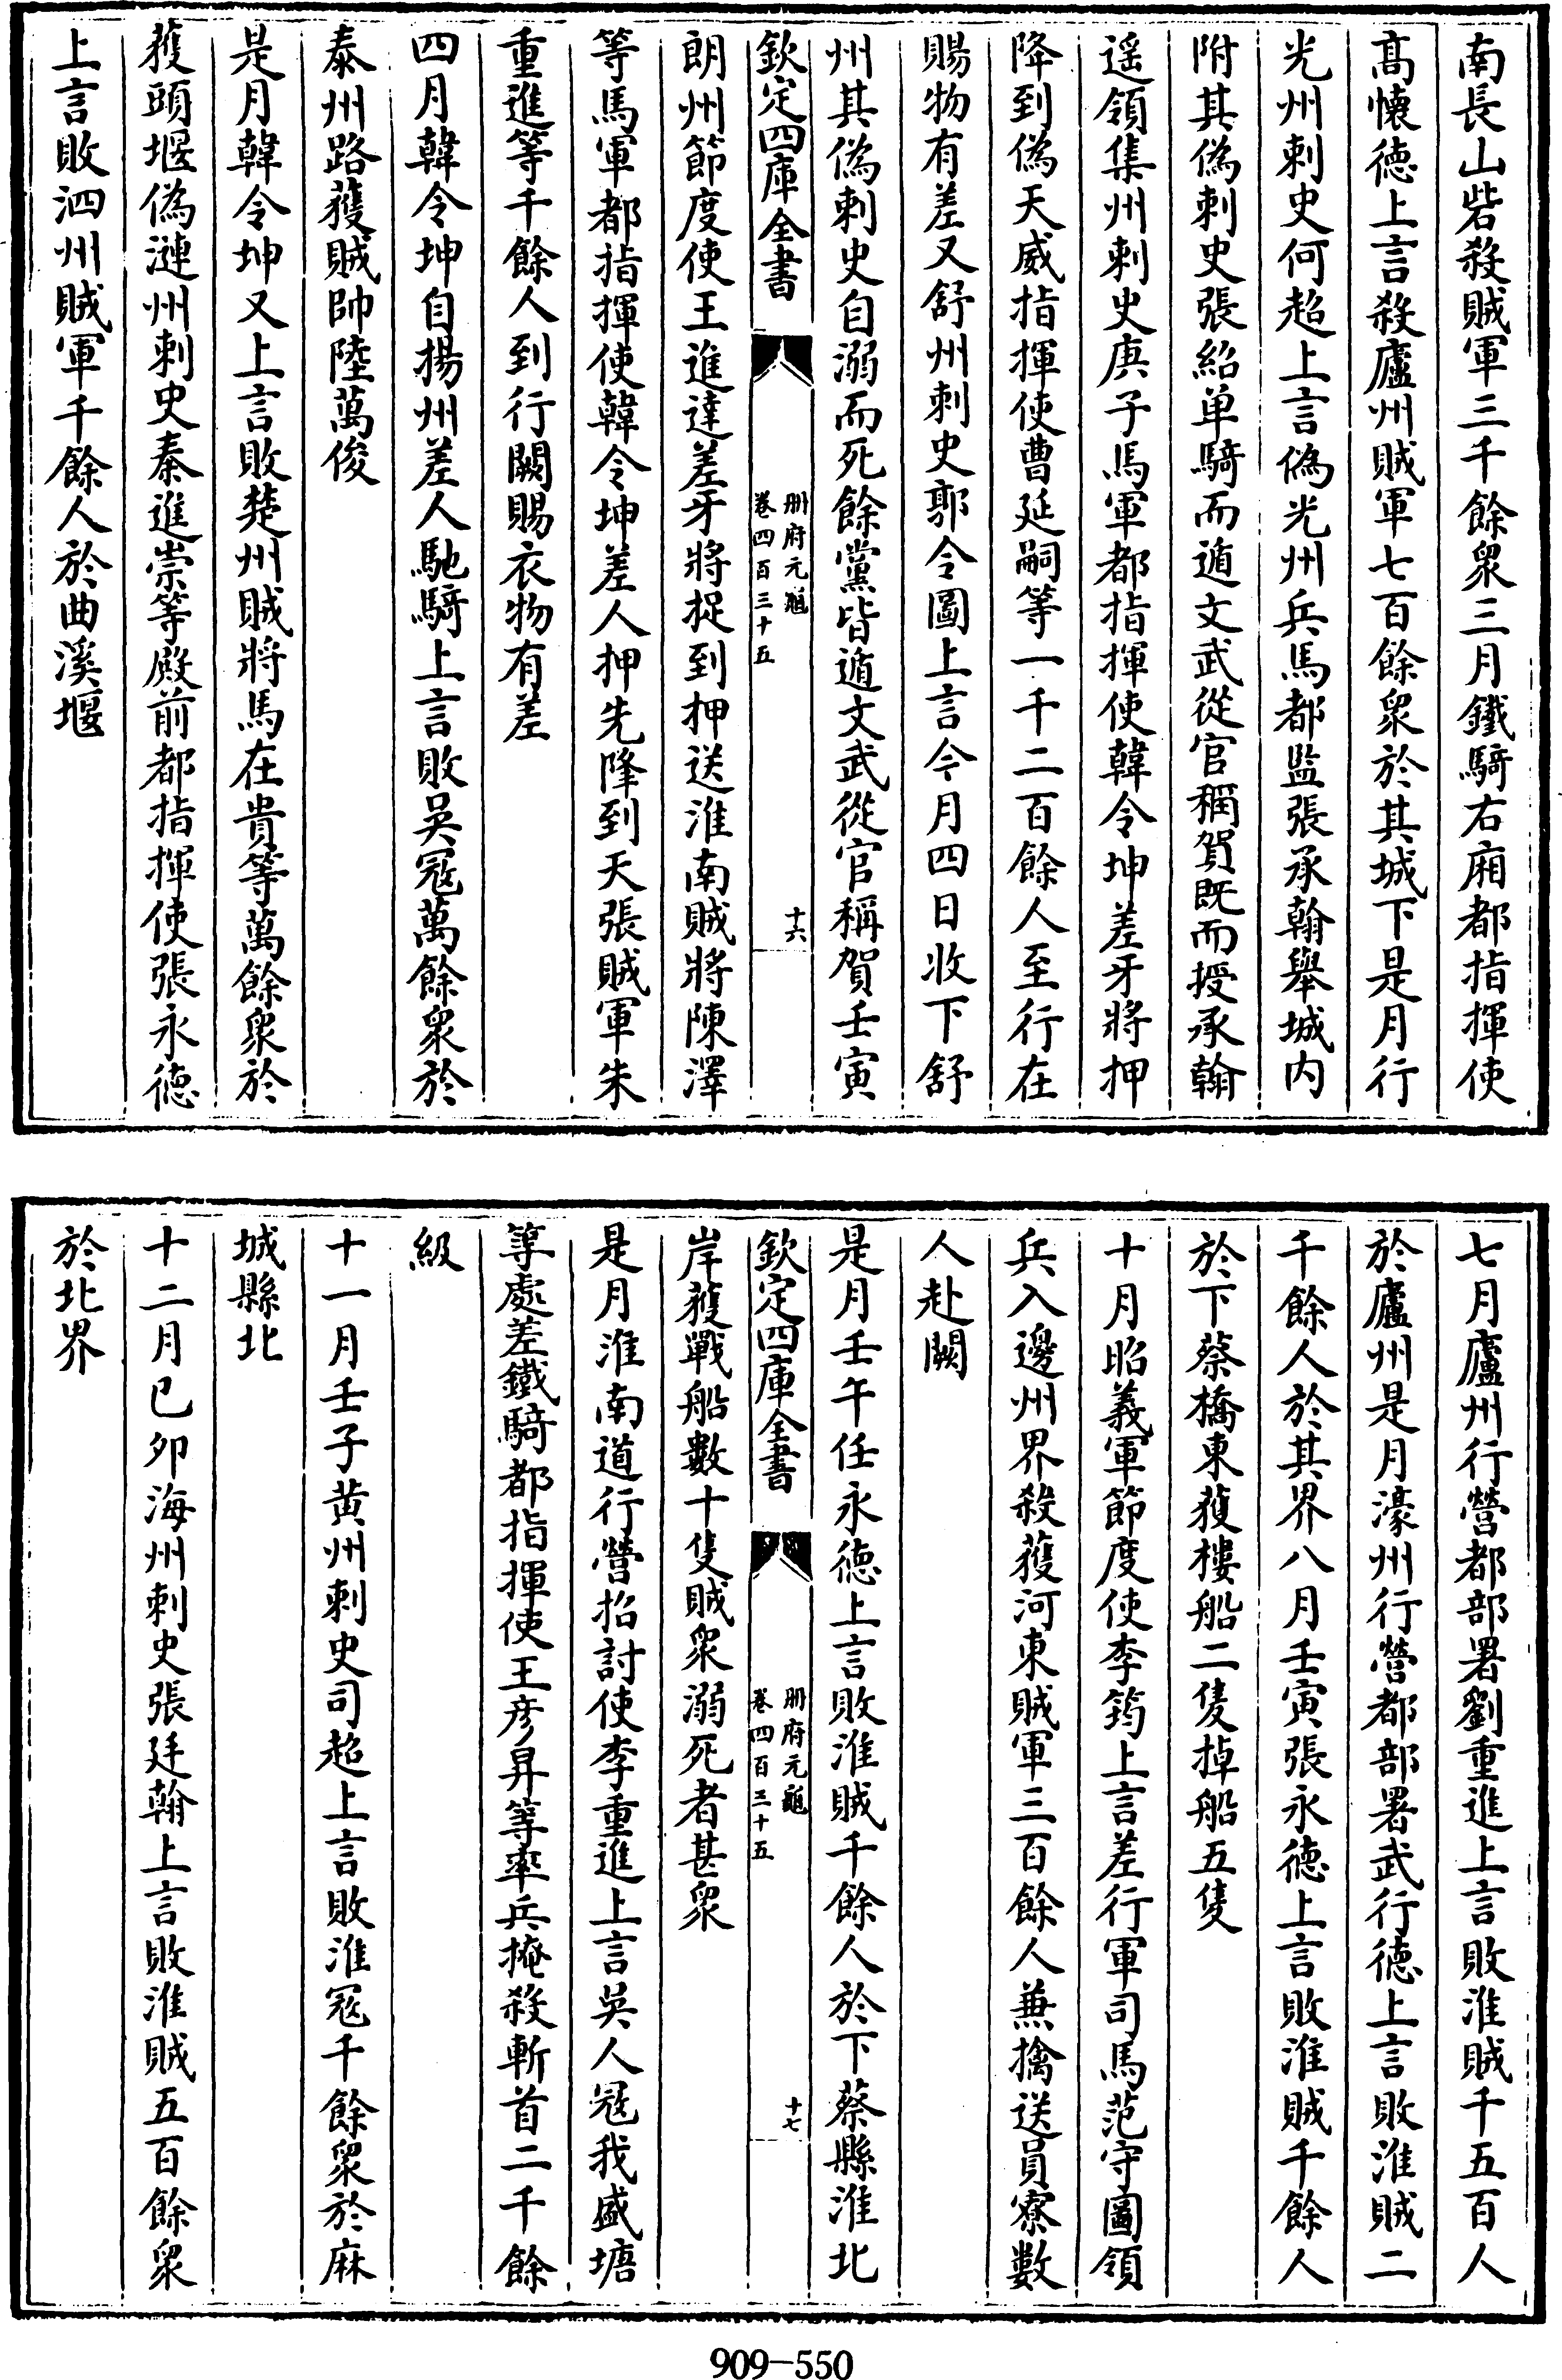 南長山砦殺賊軍三千餘衆三月鐵騎右廂都指揮使
髙懷徳上言殺廬州賊軍七百餘衆於其城下是月行
光州刺史何超上言偽光州兵馬都監張承翰舉城内
附其偽刺史張紹单騎而遁文武從官稱賀既而授承翰
遥領集州刺史庚子馬軍都指揮使韓令坤差牙將押
降到偽天威指揮使曹延嗣等一千二百餘人至行在
賜物有差又舒州刺史郭令圖上言今月四日收下舒
州其偽刺史自溺而死餘黨皆遁文武從官稱賀壬寅
欽定四庫全書
冊府元龜
卷四百三十五
十六
朗州節度使王進逹差牙將捉到押送淮南賊將陳澤
等馬軍都指揮使韓令坤差人押先降到天張賊軍朱
重進等千餘人到行闕賜衣物有差
四月韓令坤自揚州差人馳騎上言敗吳冦萬餘衆於
泰州路獲賊帥陸萬俊
是月韓令坤又上言敗楚州賊將馬在貴等萬餘衆於
獲頭堰偽漣州刺史秦進崇等殿前都指揮使張永徳
上言敗泗州賊軍千餘人於曲溪堰
七月廬州行營都部署劉重進上言敗淮賊千五百人
於廬州是月濠州行營都部署武行徳上言敗淮賊二
千餘人於其界八月壬寅張永徳上言敗淮賊千餘人
於下蔡橋東獲樓船二隻掉船五隻
十月昭義軍節度使李筠上言差行軍司馬范守圖領
兵入邊州界殺獲河東賊軍三百餘人兼擒送員寮數
人赴闕
是月壬午任永徳上言敗淮賊千餘人於下蔡縣淮北
欽定四庫全書
冊府元龜
卷四百三十五
十七
岸獲戰船數十隻賊衆溺死者甚衆
是月淮南道行營招討使李重進上言吳人冦我盛塘
等處差鐵騎都指揮使王彦昇等率兵掩殺斬首二千餘
級
十一月壬子黄州刺史司超上言敗淮冦千餘衆於麻
城縣北
十二月已卯海州刺史張廷翰上言敗淮賊五百餘衆
於北界
909-550